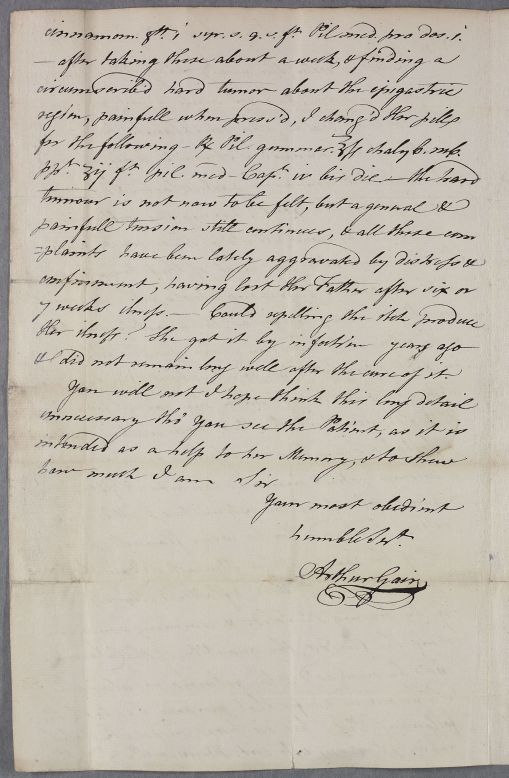 cinnamom. gtt. i syr. s. q. s. ft. Pil med. pro dos. i.
– after taking these about a week, & finding a
circumscrib'd hard tumor about the epigastric
region, painfull when press'd, I chang'd Her pills
for the following – ℞ Pil. gummos. ʒſs chalyb. rub.
ppt. ʒij ft. pil. med – Capt. iv bis die. – the hard
tumour is not now to be felt, but a general &
painfull tension still continues, & all these com
=plaints have been lately aggravated by distress &
confinement, having lost Her Father after six or
7 weeks illness. – Could repelling the itch produce
Her illness? She got it by infection years ago
& did not remain long well after the cure of it.
You will not I hope think this long detail
unnecessary tho' You see the Patient, as it is
intended as a help to her Memory, & to shew
how much I am Sir
Your most obedient
humble Sert.
Arthur Gair